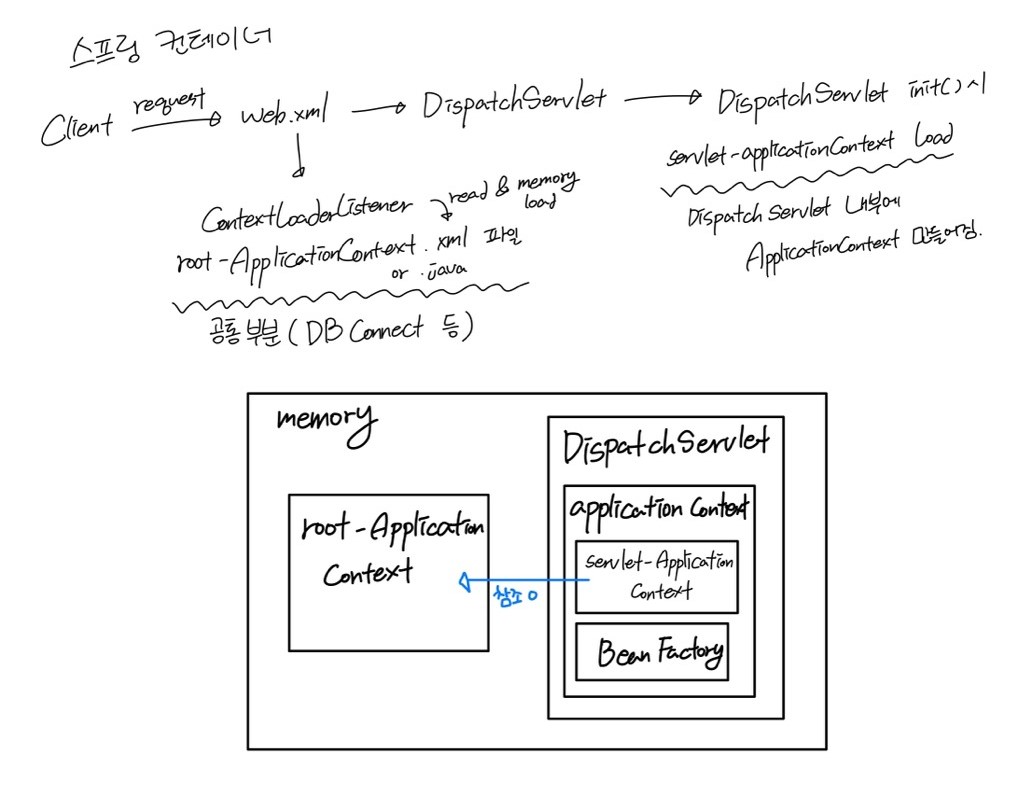 스프링 컨테이너
Client request web.xml DispatchServlet DispatchServlet init() 시
servlet-applicationContext load
DispatchServlet 내부에
ApplicationContext 만들어짐.
ContextLoaderListener read & memory load
root-ApplicationContext.xml 파일
or .java
공통 부분 (DB Connect 등)
memory
root-Application
Context
참조 O
DispatchServlet
application Context
servlet-Application
Context
Bean Factory